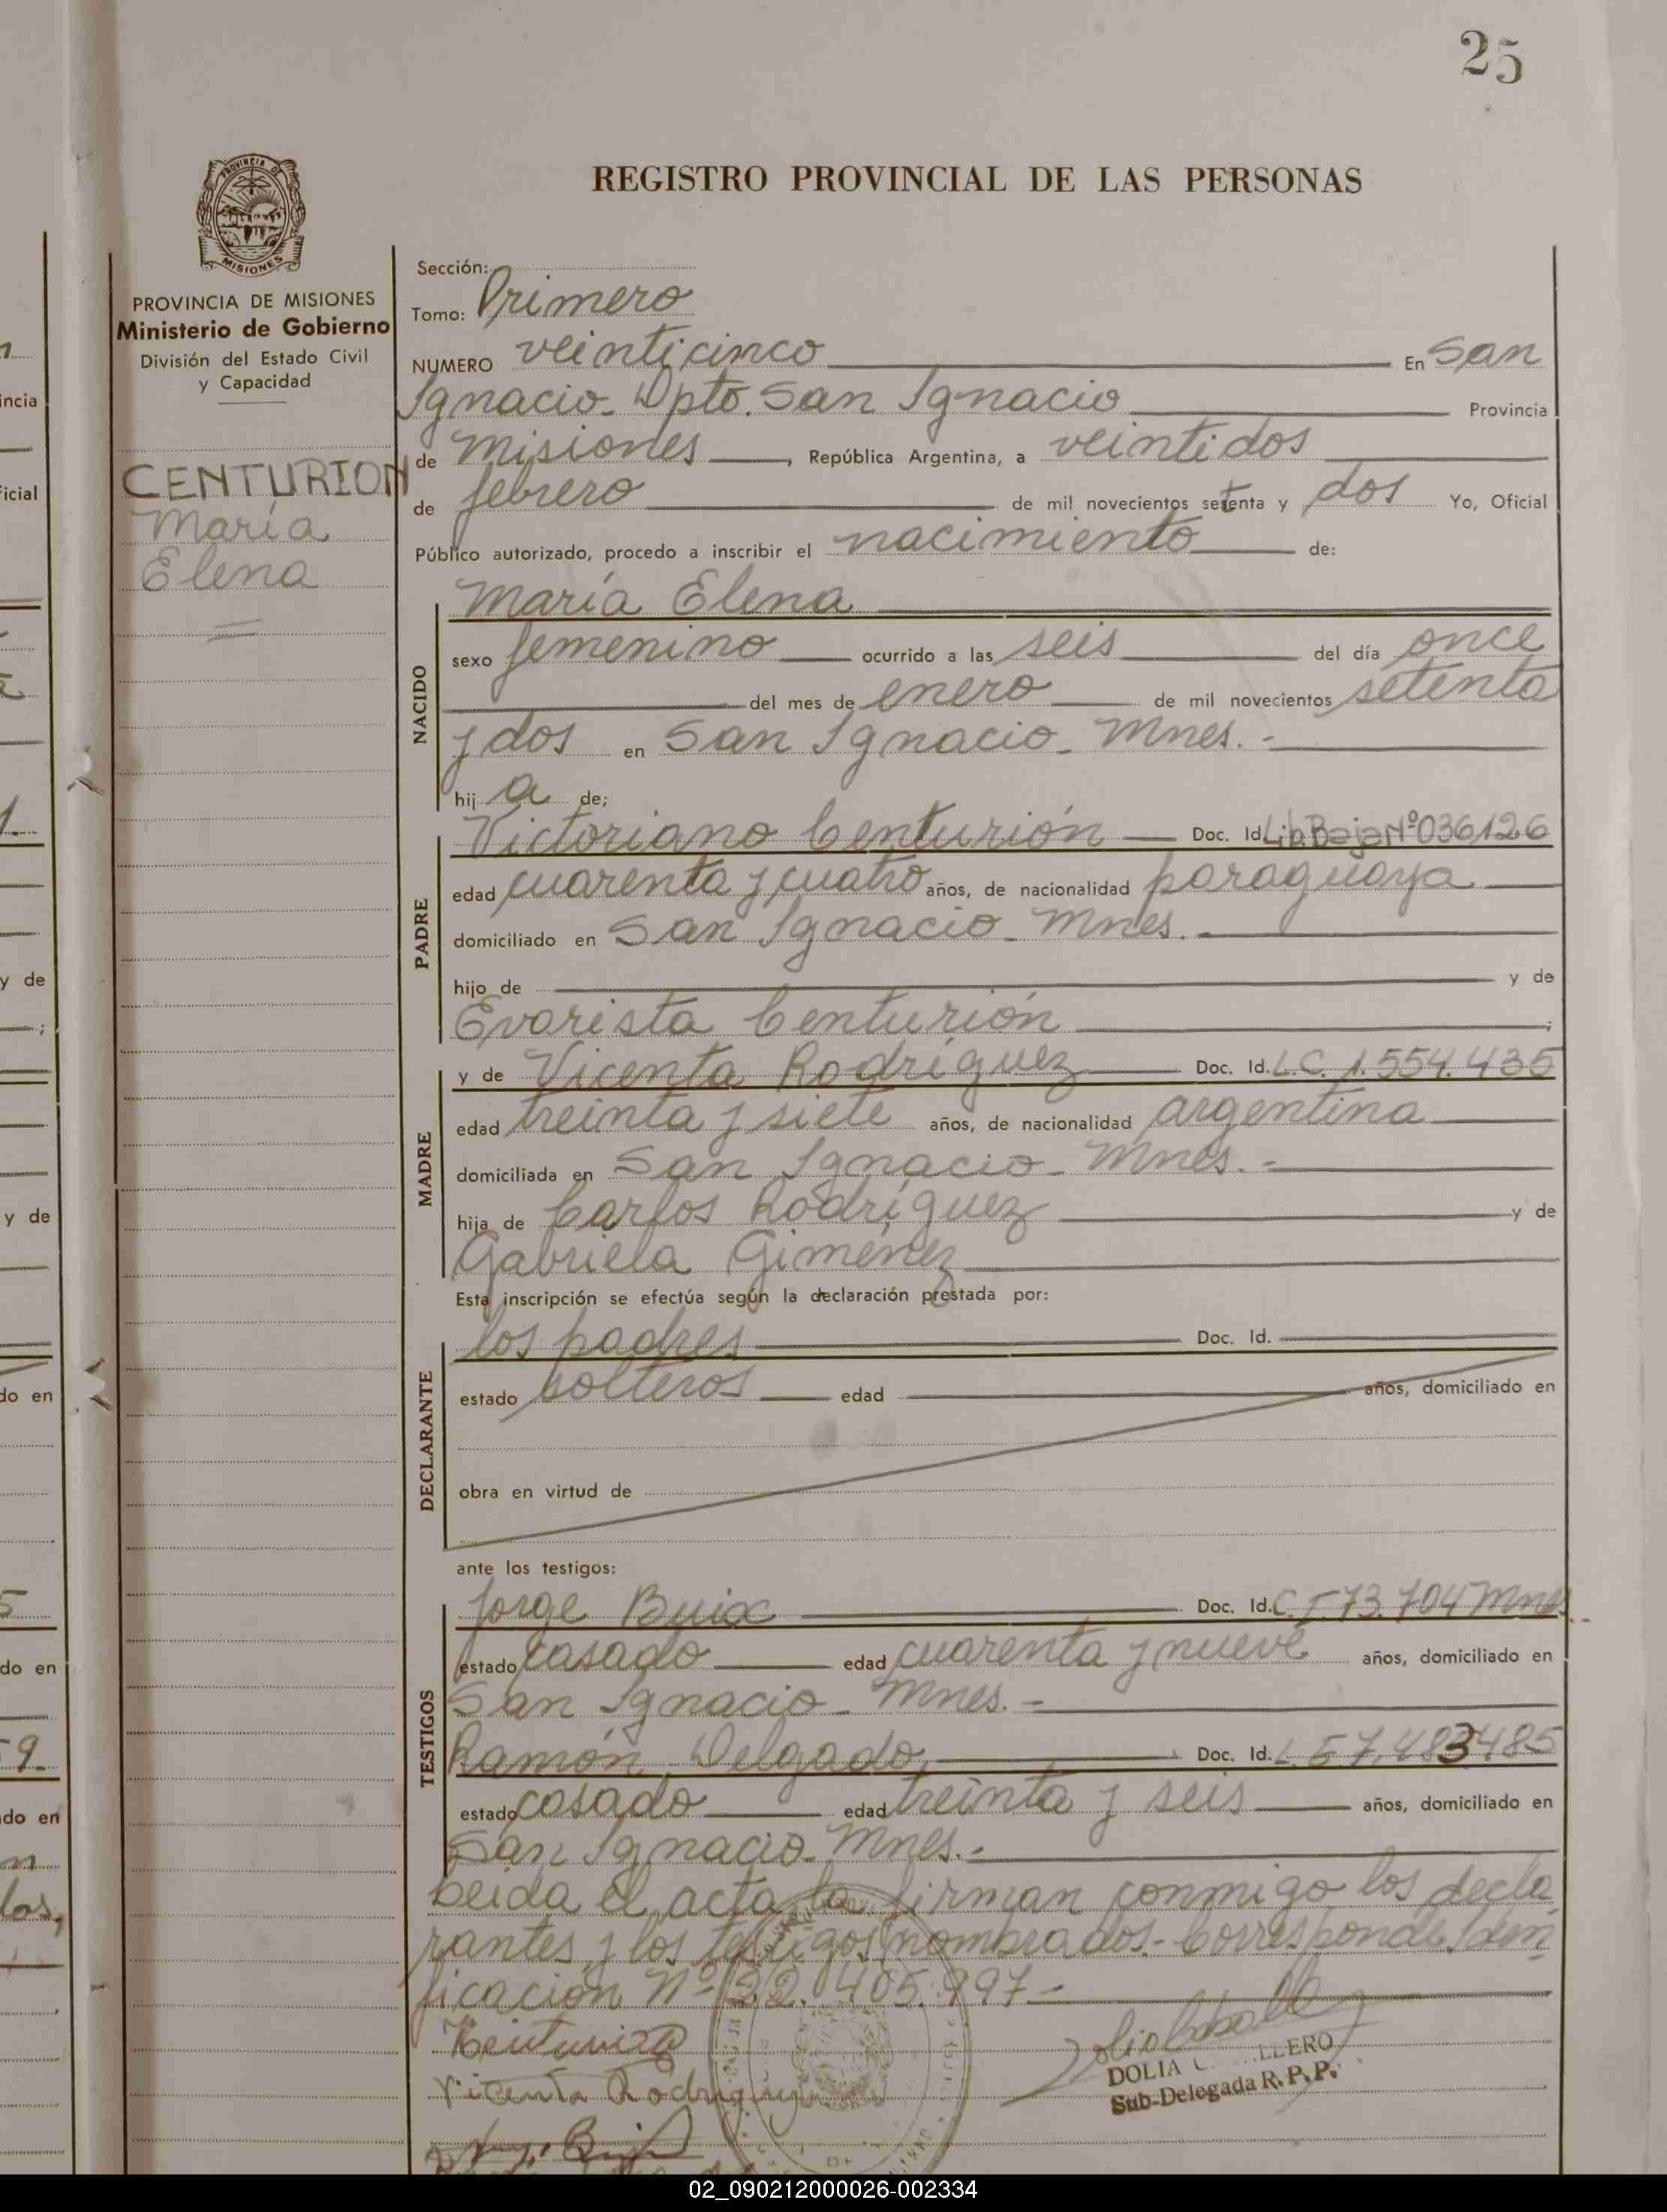 25
REGISTRO PROVINCIAL DE LAS PERSONAS
PROVINCIA DE MISIONES
Ministerio de Gobierno
División del Estado Civil
y Capacidad
CENTURION
María
Elena
Sección:
Tomo: Primero
NUMERO veinticinco En San
Ignacio - Dpto. San Ignacio Provincia
de Misiones, República Argentina, a veintidos
de febrero de mil novecientos setenta y dos Yo, Oficial
Público autorizado, procedo a inscribir el nacimiento de:
NACIDO
María Elena
sexo femenino ocurrido a las seis del día once
del mes de enero de mil novecientos setenta
y dos en San Ignacio - Mnes. -
hij a de;
PADRE
Victoriano Centurión Doc. Id. Lib. Baja Nº 036126
edad cuarenta y cuatro años, de nacionalidad paraguaya
domiciliado en San Ignacio - Mnes. -
hijo de y de
Evarista Centurión ;
MADRE
y de Vicenta Rodríguez Doc. Id. L.C. 1.554.435
edad treinta y siete años, de nacionalidad argentina
domiciliada en San Ignacio - Mnes. -
hija de Carlos Rodríguez y de
Gabriela Giménez
Esta inscripción se efectúa según la declaración prestada por:
DECLARANTE
los padres Doc. Id.
estado solteros edad años, domiciliado en
obra en virtud de
ante los testigos:
TESTIGOS
Jorge Buix Doc. Id. C.I. 73.704 Mnes. -
estado casado edad cuarenta y nueve años, domiciliado en
San Ignacio - Mnes. -
Ramón Delgado Doc. Id. 7.483485
estado casado edad treinta y seis años, domiciliado en
San Ignacio - Mnes. -
Leida el acta la firman conmigo los decla
rantes y los testigos nombrados - Corresponde Iden
ficación Nº 22.405.997 -
Vicenta Rodriguez
DOLIA C LLERO
Sub-Delegada R. P. P.
02_090212000026-002334